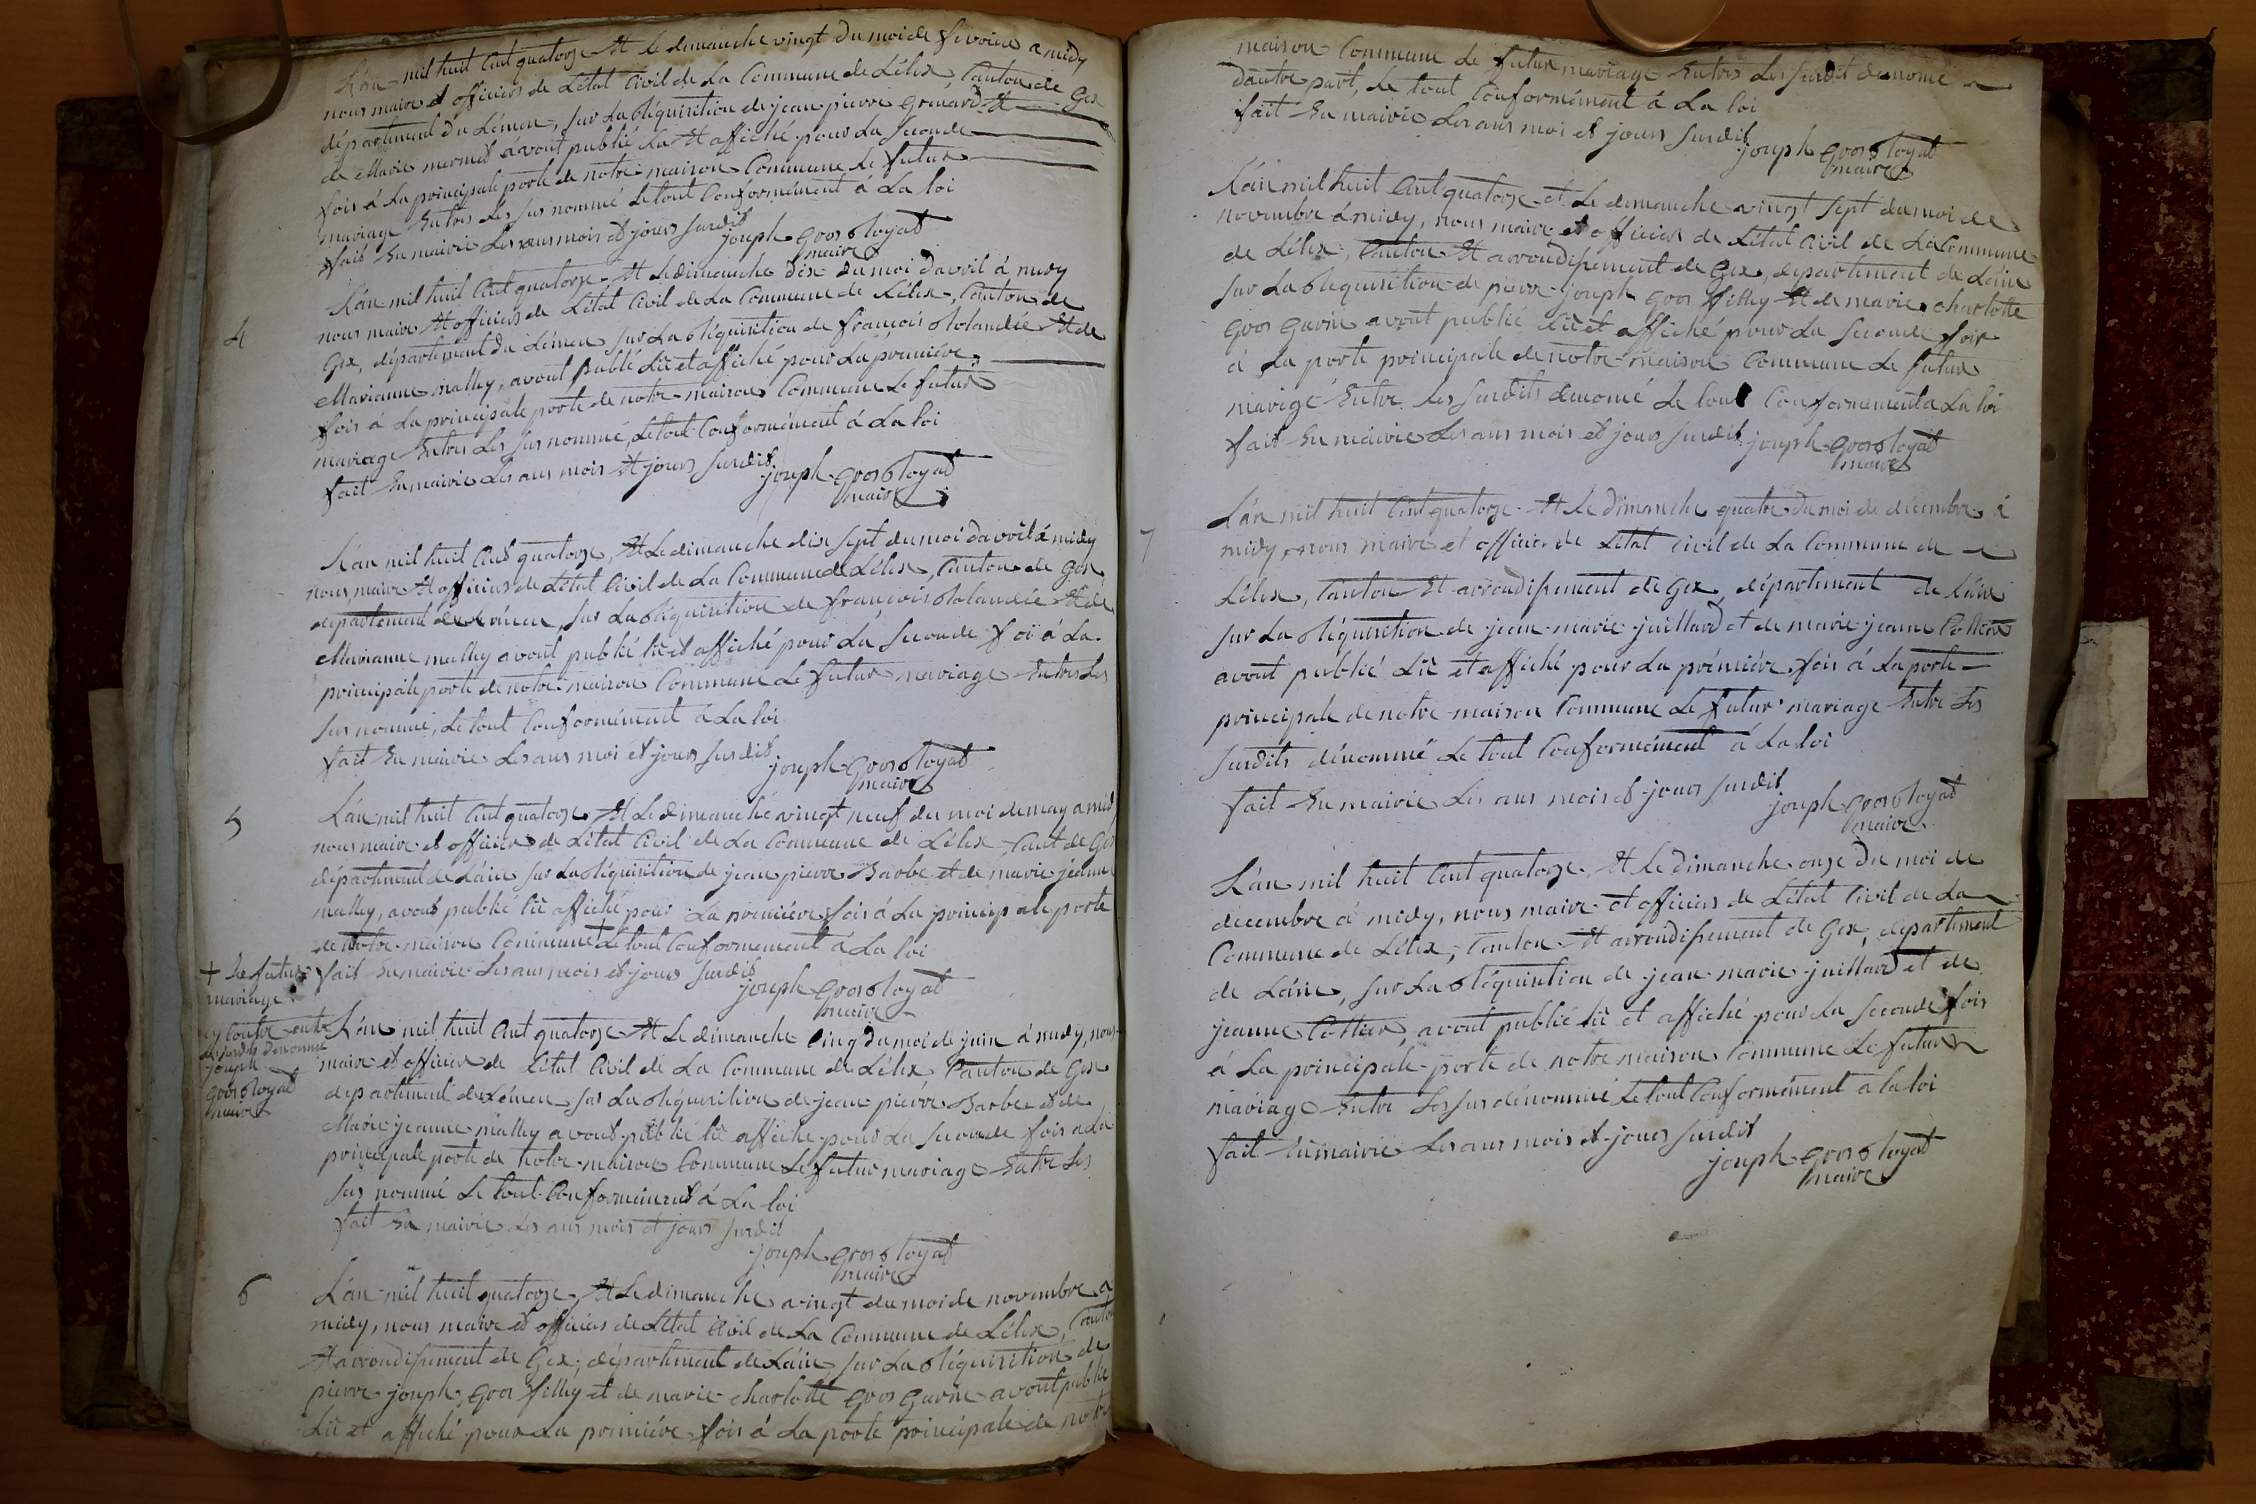 L'an mil huit Cent quatorze Et le dimanche vingt du moi de fevrier a midy
nous maire et officiers de L'état Civil de La Commune de Lélex, Canton de Gex
département du Léman, sur La Réquisition de jean pierre Grenard Et
de Marie mermet avont publié Lu Et affiché pour La Seconde
fois á La principale porte de notre maison Commune Le futur
mariage Entres Les sus nommé Le tout Conformément á La loi
fait En mairie Les ans mois et jours susdit
joseph Gros toyat
maire
4
L'an mil huit Cent quatorze, Et Le dimanche dix du moi davril á midy
nous maire Et officiers de L'état Civil de La Commune de Lélex, Canton de
Gex, département du Léman sur La Réquisition de françois Rolandée Et de
Marianne mathy, avont publé Lû et affiché pour La première
fois á La principale porte de notre maison Commune Le futur
mariage Entres Les sus nommé, Le tout Conformément á La loi
fait En mairie Les ans mois Et jours susdit
joseph Gros toyat
maire
L'an mil huit Cent quatorze, Et Le dimanche dix sept du moi davril á midy
nous maire Et officiers de L'état Civil de La Commune de Lélex, Canton de Gex
département du Léman, sur La Réquisition de françois Rolandée Et de
Marianne mathy avont publié lû et affiché pour La Seconde foi á La
principale porte de notre maison Commune Le futur mariage Entres Les
sus nommé, Le tout Conformément á La loi
fait En mairie Les ans moi et jours susdit
joseph Gros toyat
maire
5
L'an mil huit Cent quatorze, Et Le dimanche vingt neuf du moi de may a midy
nous maire et officiers de L'état Civil de La Commune de Lélex, Cant de Gex
département de L'ain sur La Réquisition de jean pierre Barbe et de marie jeanne
mathy, avont publié lû affiché pour La première fois á La principale porte
de notre maison Commune + Le tout Conformement á La loi
fait En mairie Les ans mois et jours susdit
joseph Gros toyat
maire
+ Le futur
mariage
cy contre entre
Les susdits dénommé
joseph
Gros toyat
maire
L'an mil huit Cent quatorze Et Le dimanche Cinq du moi de juin á midy, nous
maire et officier de L'état Civil de La Commune de Lélex Canton de Gex
département du Léman sur La Réquisition de jean pierre Barbe et de
Marie jeanne mathy avont publié lû affiché pour La Seconde fois a La
principale porte de notre maison Commune Le futur mariage Entre Les
sus nommé Le tout Conformément á La loi
fait En mairie Les ans mois et jours susdit
joseph Gros toyat
maire
6
L'an mil huit quatorze, Et Le dimanche vingt du moi de novembre a
midy, nous maire et officiers de L'état Civil de La Commune de Lélex, Canton
Et arrondissement de Gex, département de L'ain sur La Réquisition de
pierre joseph Gros filley et de marie charlotte Gros Gurin avont publié
Lû et affiché pour La première fois á La porte principale de notre
maison Commune Le futur mariage Entres Les susdit dénomé
dautre part, Le tout Conformément á La loi
fait En mairie Les ans moi et jours susdit
joseph Gros toyat
maire
L'an mil huit Cent quatorze et Le dimanche vingt sept du moi de
novembre á midy, nous maire et officier de L'état Civil de La Commune
de Lélex, Canton Et arrondissement de Gex, département de L'ain
sur La Réquisition de pierre joseph Gros filley Et de marie charlotte
Gros Gurin avont publié lû et affiché pour La Seconde fois
á La porte principale de notre maison Commune Le futur
marige Entre les susdits denomé Le tout Conformement a La loi
fait En mairie Les ans mois et jours susdit joseph Gros toyat
maire
7
L'an mil huit Cent quatorze Et Le dimanche quatre du moi de décembre á
midy, nous maire et officier de L'état civil de La Commune de
Lélex, Canton Et arrondissement de Gex, département de L'ain
sur La Réquisition de jean marie juillard et de marie jeanne Cottier
avont publié Lû et affiché pour La première fois á La porte
principale de notre maison Commune Le futur mariage Entre Les
susdits dénommé Le tout Conformément á La loi
fait En mairie Les ans mois et jours susdit
joseph Gros toyat
maire
L'an mil huit Cent quatorze Et Le dimanche onze du moi de
décembre á midy, nous maire et officiers de L'état Civil de La
Commune de Lélex, Canton Et arrondissement de Gex, département
de L'ain, sur La Réquisition de jean marie juillard et de
jeanne Cottier, avont publié lû et affiché pour La Seconde fois
á La principale porte de notre maison Commune Le futur
mariage Entre Les sus dénommé Le tout Conformément a la loi
fait En mairie Les ans mois et jours susdit
joseph Gros toyat
maire